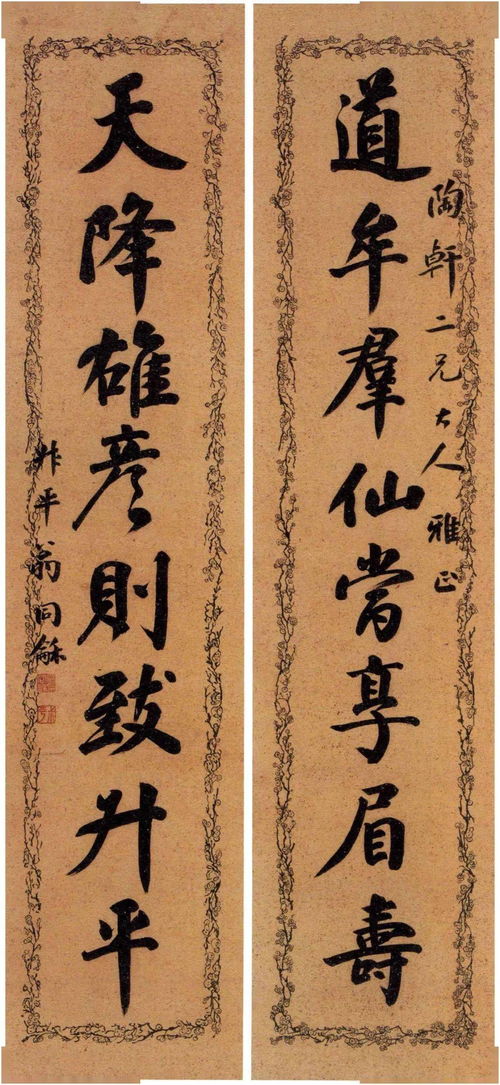 道牟羣仙當享眉壽
陶軒二兄大人雅正
天降雄彥則致升平
叔平翁同龢